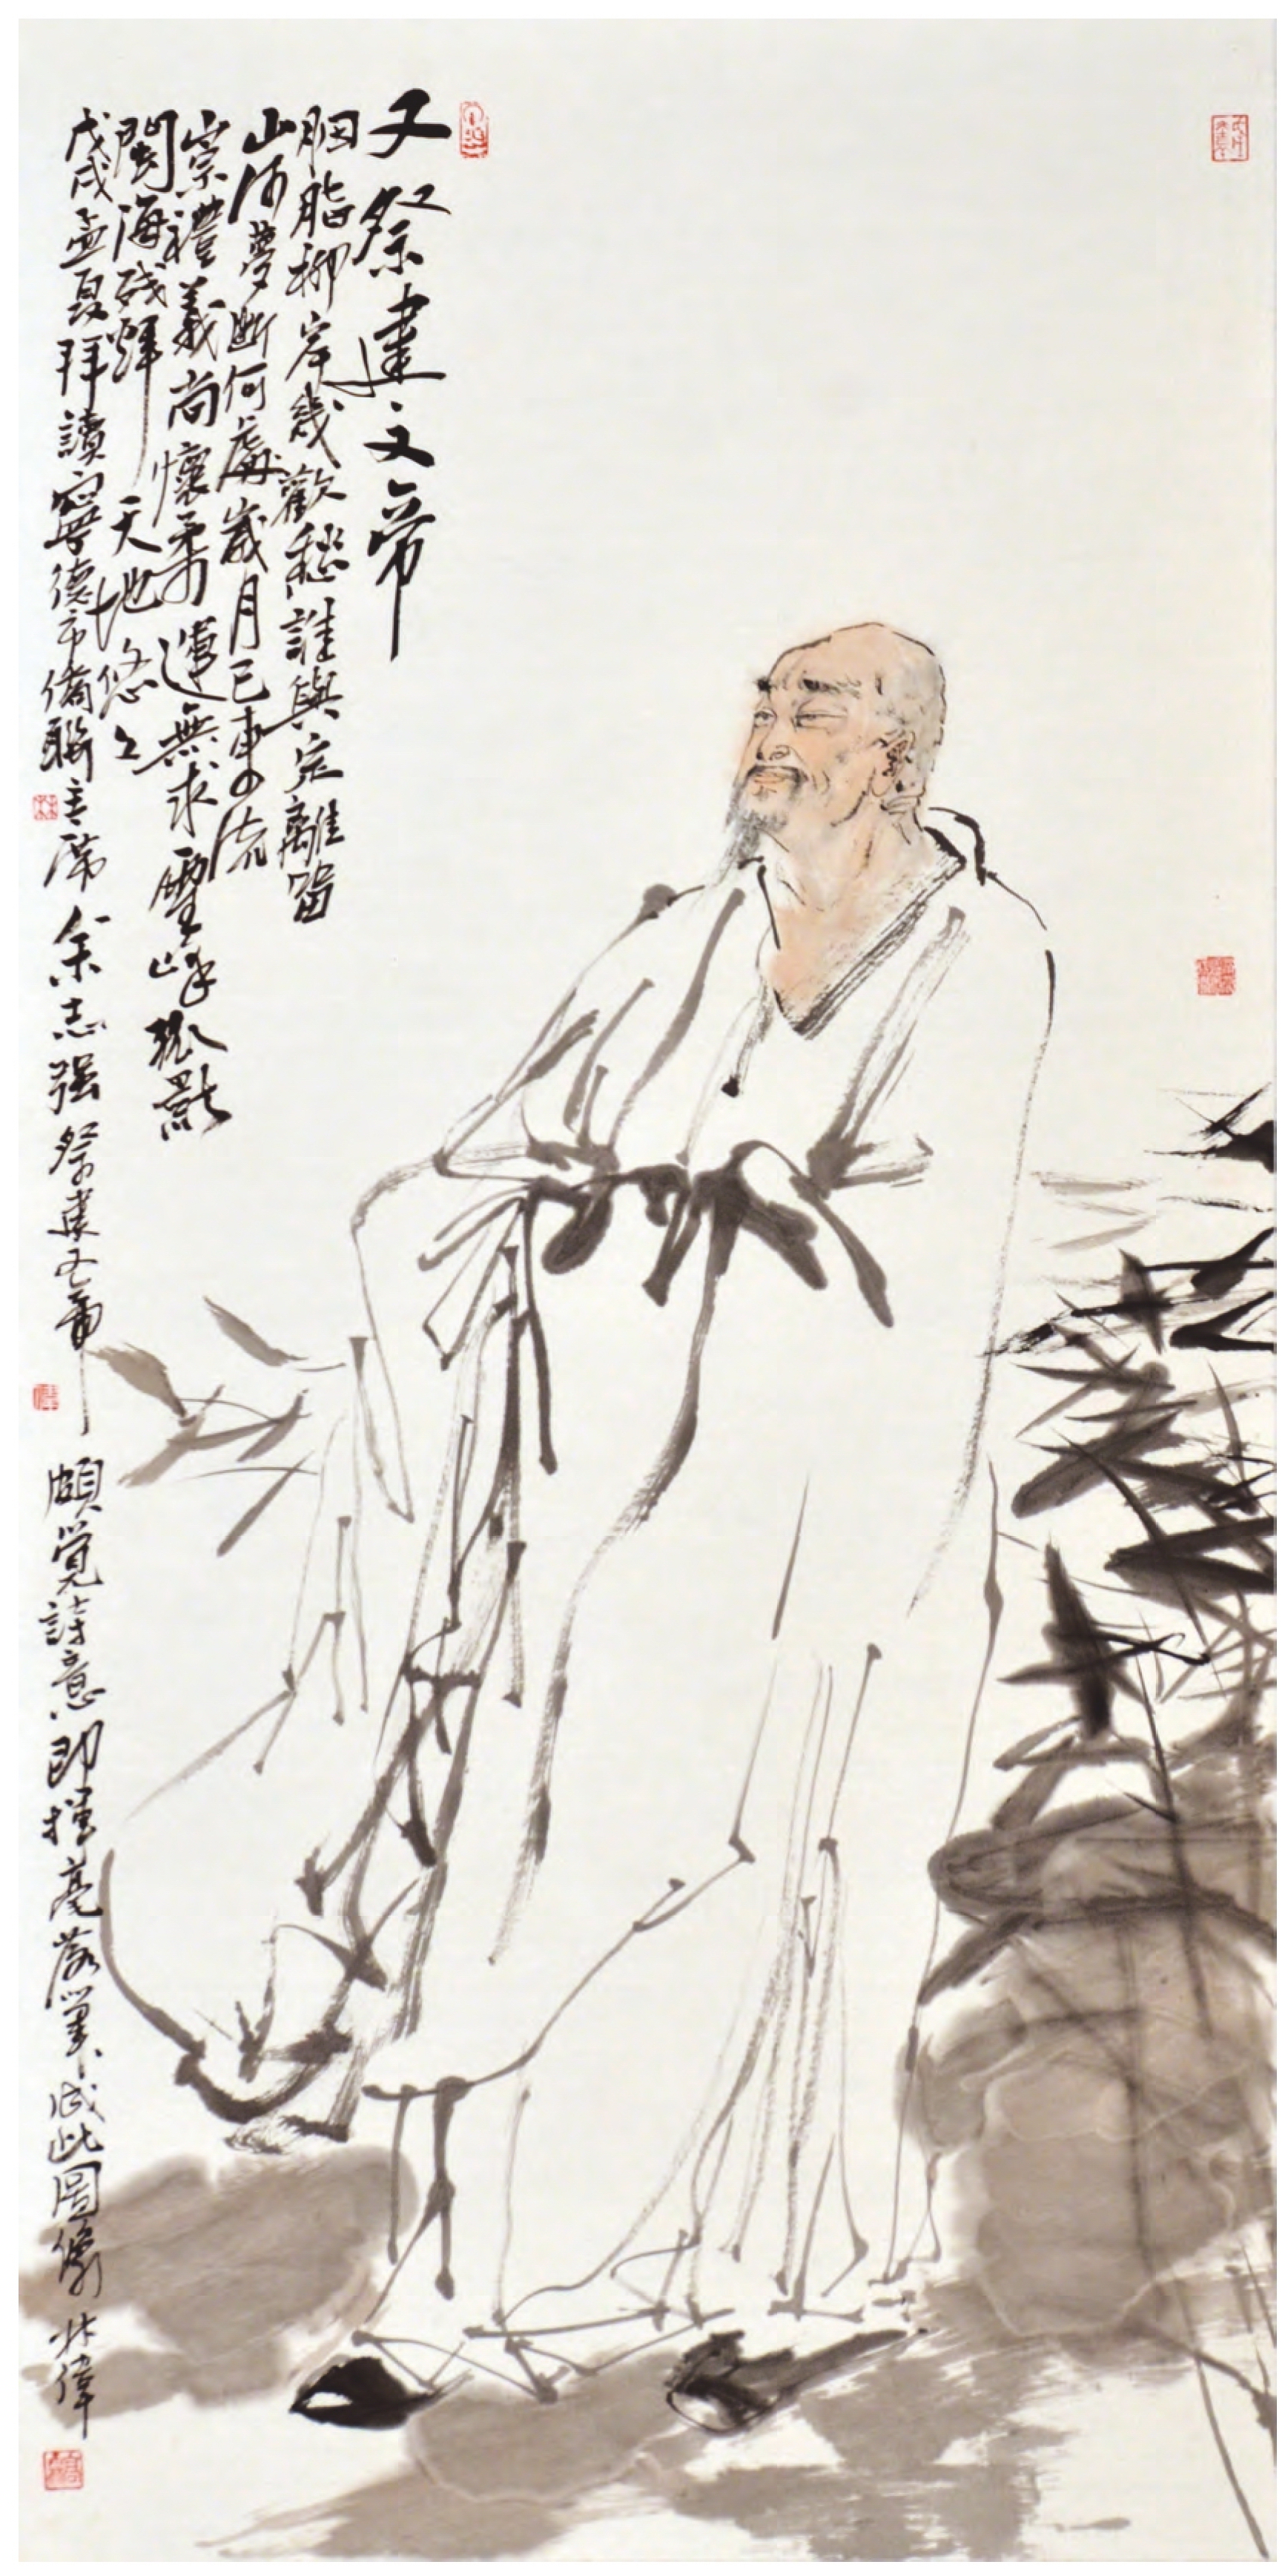 又祭建文帝
胭脂柳岸几歡愁誰與定離留
山河夢斷何處歲月已東流
崇禮義尚懷柔運無求雪峰孤影
閩海殘輝天地悠々
戊戌孟夏拜讀寧德市僑聯主席余志强祭建文帝頗覺詩意即揮毫落筆成此圖像林偉